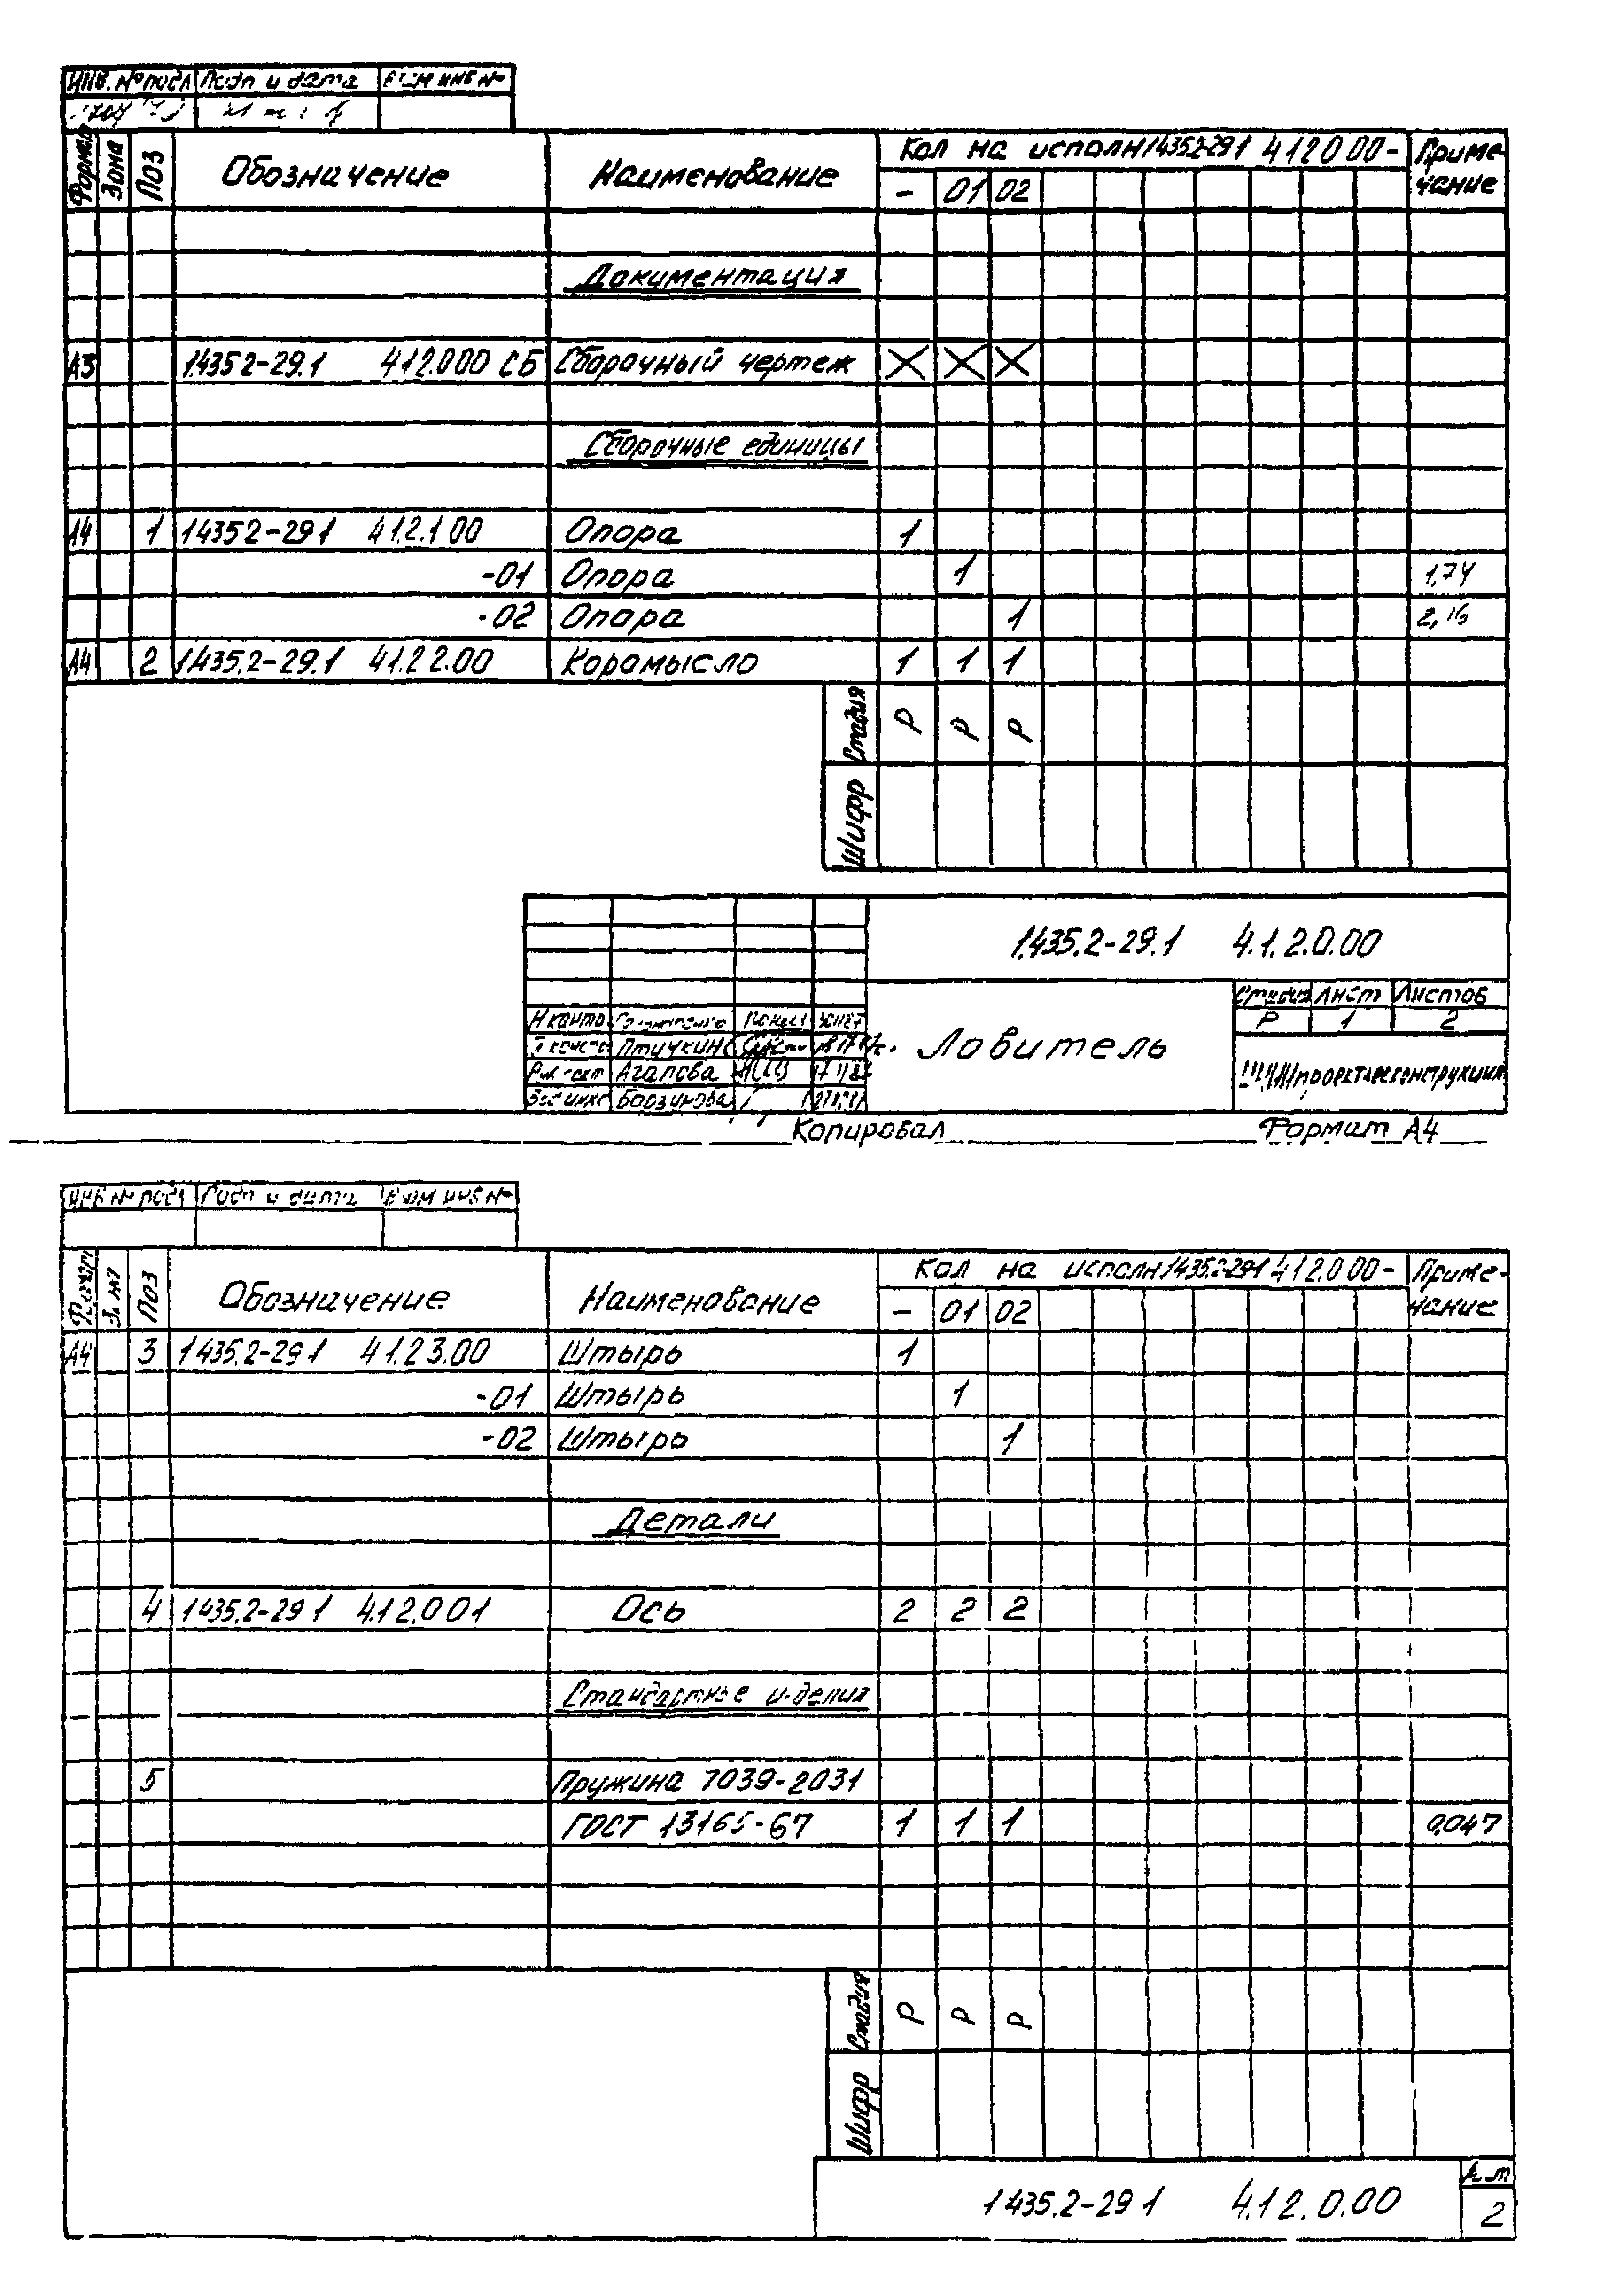 Инв. № подл Подп и дата Взам инв №
Формат Зона Поз Обозначение Наименование Кол на исполн 1.435.2-29.1 4.1.2.0.00- Приме-
чание
- 01 02
Документация
А3 1.435.2-29.1 4.1.2.0.00 СБ Сборочный чертеж X X X
Сборочные единицы
А4 1 1.435.2-29.1 4.1.2.1.00 Опора 1
-01 Опора 1 1,74
-02 Опора 1 2,16
А4 2 1.435.2-29.1 4.1.2.2.00 Коромысло 1 1 1
Стадия Р Р Р
Шифр
1.435.2-29.1 4.1.2.0.00
Стадия Лист Листов
Р 1 2
Н контр
Птичкин
Агапова
Ловитель
Копировал Формат А4
Инв № подл Подп и дата Взам инв №
Формат Поз Обозначение Наименование Кол на исполн 1.435.2-29.1 4.1.2.0.00- Приме-
чание
- 01 02
А4 3 1.435.2-29.1 4.1.2.3.00 Штырь 1
-01 Штырь 1
-02 Штырь 1
Детали
4 1.435.2-29.1 4.1.2.0.01 Ось 2 2 2
Стандартные изделия
5 Пружина 7039-2031
ГОСТ 13165-67 1 1 1 0,047
Стадия Р Р Р
Шифр
1.435.2-29.1 4.1.2.0.00
Лист
2